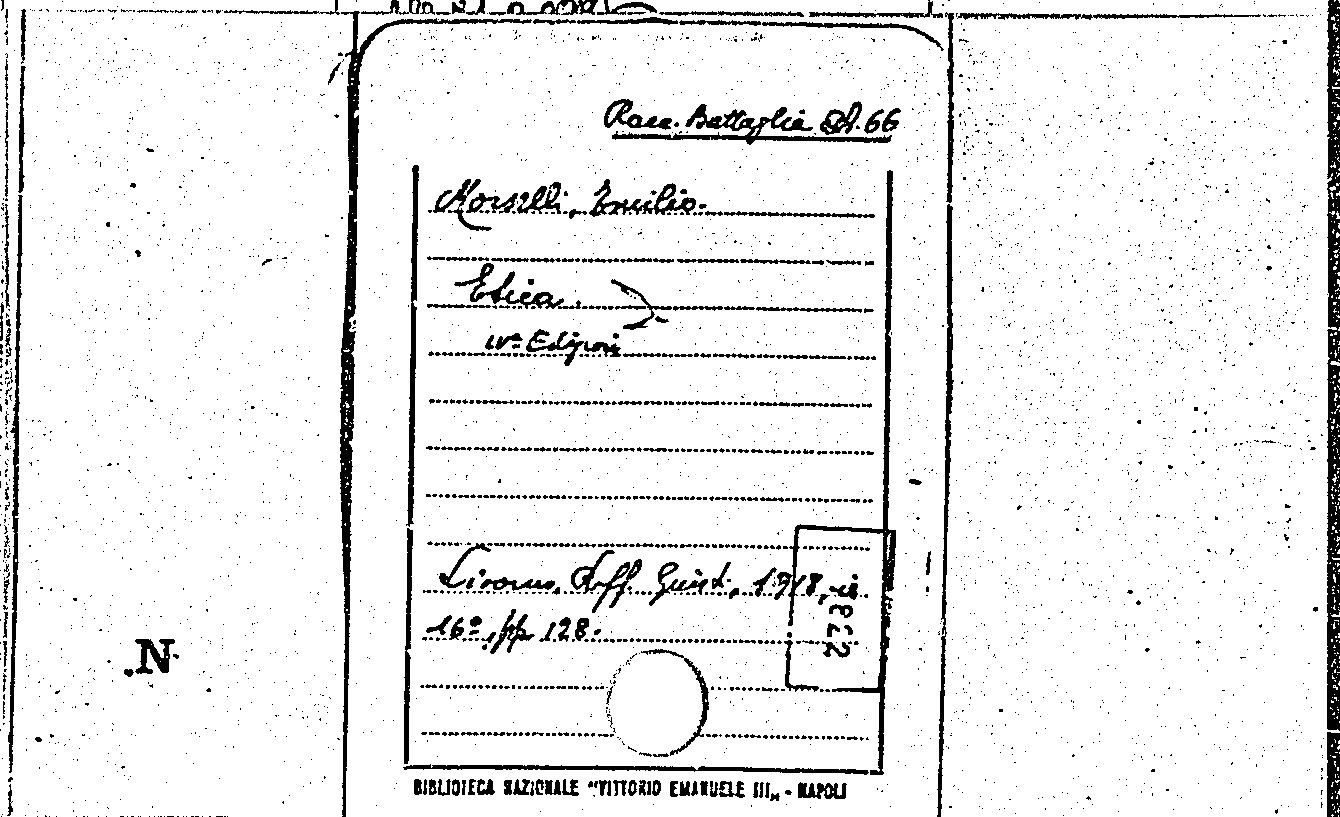 Racc. Battaglia A. 66
Morselli, Emilio.
Etica.
IVª Edizione
Livorno, Raff. Giusti, 1918, in
16º, pp. 128.
822
N
BIBLIOTECA NAZIONALE "VITTORIO EMANUELE III„ - NAPOLI